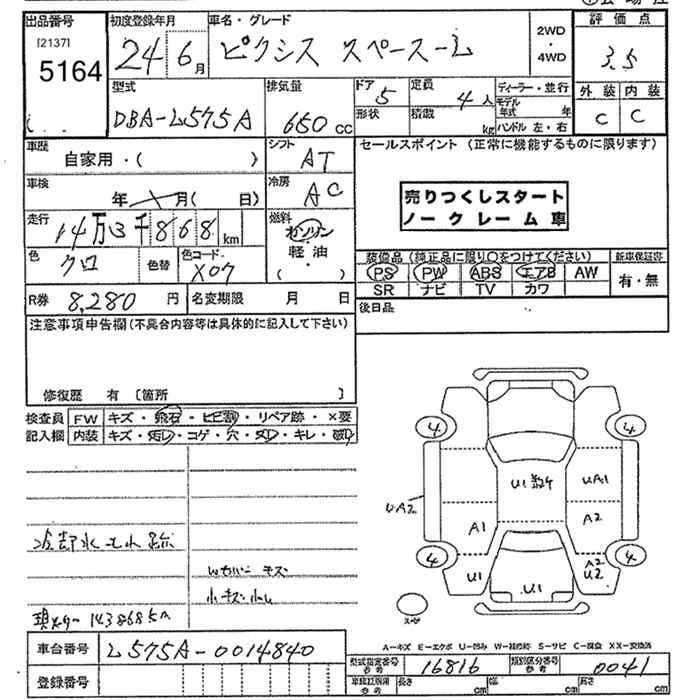 出品番号 初度登録年月 車名・グレード 2WD・4WD 評価点
[2137]
5164 24 6月 ピクシス スペースーL 3.5
型式 排気量 ドア 5 定員 4人 ディーラー・並行 外装 内装
DBA-L575A 650cc 形状 積載 kg モデル年式 年 C C
ハンドル 左・右
車歴 自家用・( ) シフト AT セールスポイント (正常に機能するものに限ります)
車検 年 月( 日) 冷房 AC
売りつくしスタート
ノークレーム車
走行 14万3千868km 燃料 ガソリン・軽油 ( )
色 クロ 色替 色コード X07
装備品 (純正品に限り○をつけてください) 新車保証書
PS PW ABS エアB AW 有・無
SR ナビ TV カワ
R券 8,280円 名変期限 月 日 後日品
注意事項申告欄 (不具合内容等は具体的に記入して下さい)
修復歴 有 [箇所 ]
検査員 FW キズ・飛石・ヒビ割・リペア跡・×要
記入欄 内装 キズ・汚レ・コゲ・穴・スレ・キレ・破レ
4 4
U1 数ケ UA1
UA2
A1 A2
4 4
U1 A2 U2
U1
冷却水モレ跡
Wカバーキズ
小キズ小凹
現メーター 143868km
スペア
A-キズ E-エクボ U-凹み W-補修跡 S-サビ C-腐食 XX-交換済
車台番号 L575A-0014840
型式指定番号 参考 16816 類別区分番号 参考 0041
登録番号 車検証記載 参考 長さ cm 幅 cm 高さ cm